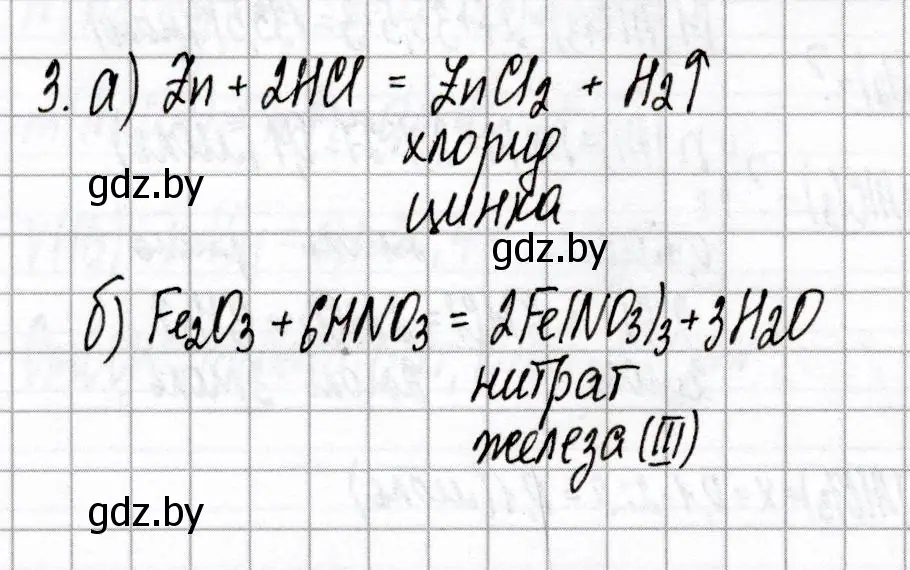 3. а) Zn + 2HCl = ZnCl2 + H2↑
хлорид
gdz.by
цинка
gdz.by
б) Fe2O3 + 6HNO3 = 2Fe(NO3)3 + 3H2O
нитрат
железа (III)
gdz.by